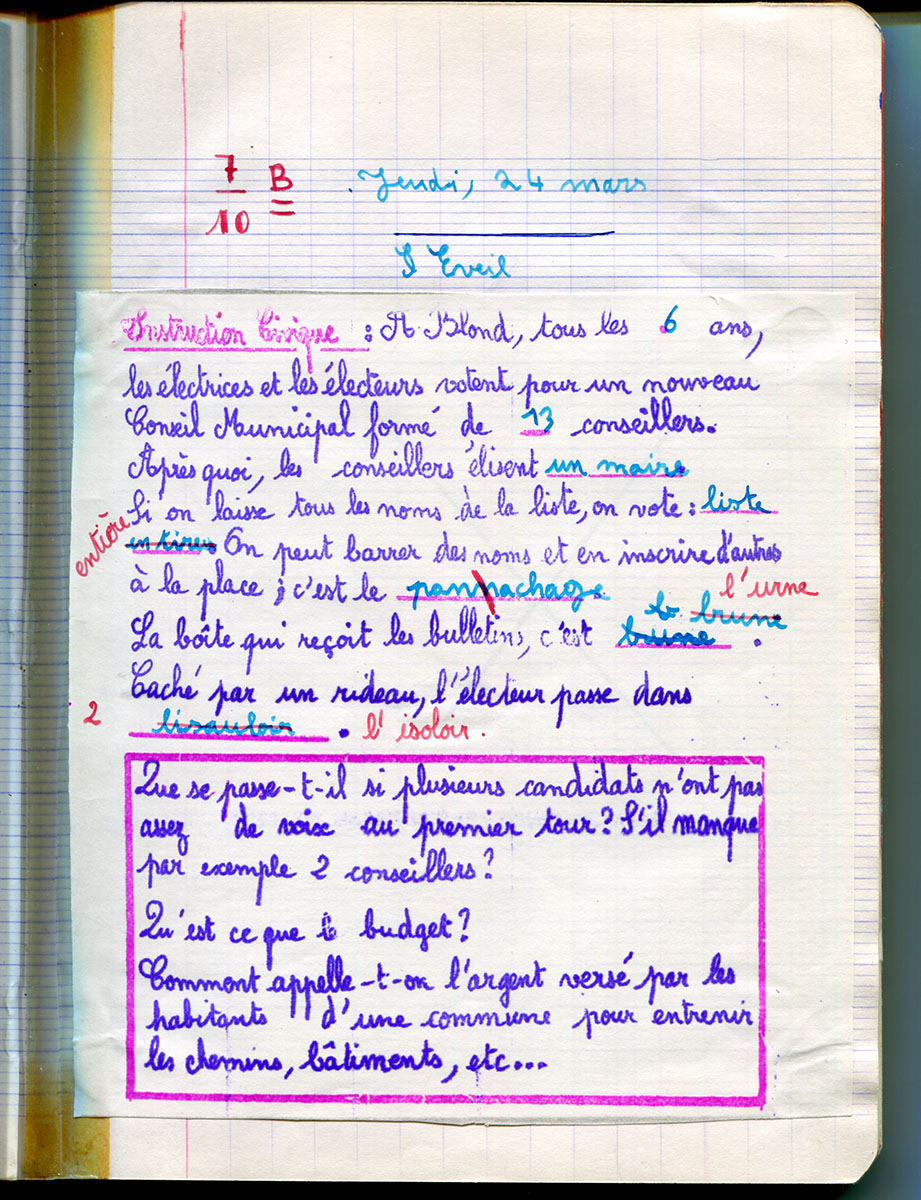 7
10 B
Jeudi, 24 mars
I Eveil
Instruction Civique : A Blond, tous les 6 ans,
les électrices et les électeurs votent pour un nouveau
Conseil Municipal formé de 13 conseillers.
Après quoi, les conseillers élisent un maire
Si on laisse tous les noms de la liste, on vote : liste
entière
On peut barrer des noms et en inscrire d'autres
à la place ; c'est le pannachage
l'urne
b brune
La boîte qui reçoit les bulletins, c'est brune .
Caché par un rideau, l'électeur passe dans
2 lisauloir . l'isoloir .
Que se passe-t-il si plusieurs candidats n'ont pas
assez de voix au premier tour ? S'il manque
par exemple 2 conseillers ?
Qu'est ce que le budget ?
Comment appelle-t-on l'argent versé par les
habitants d'une commune pour entrenir
les chemins, bâtiments, etc...